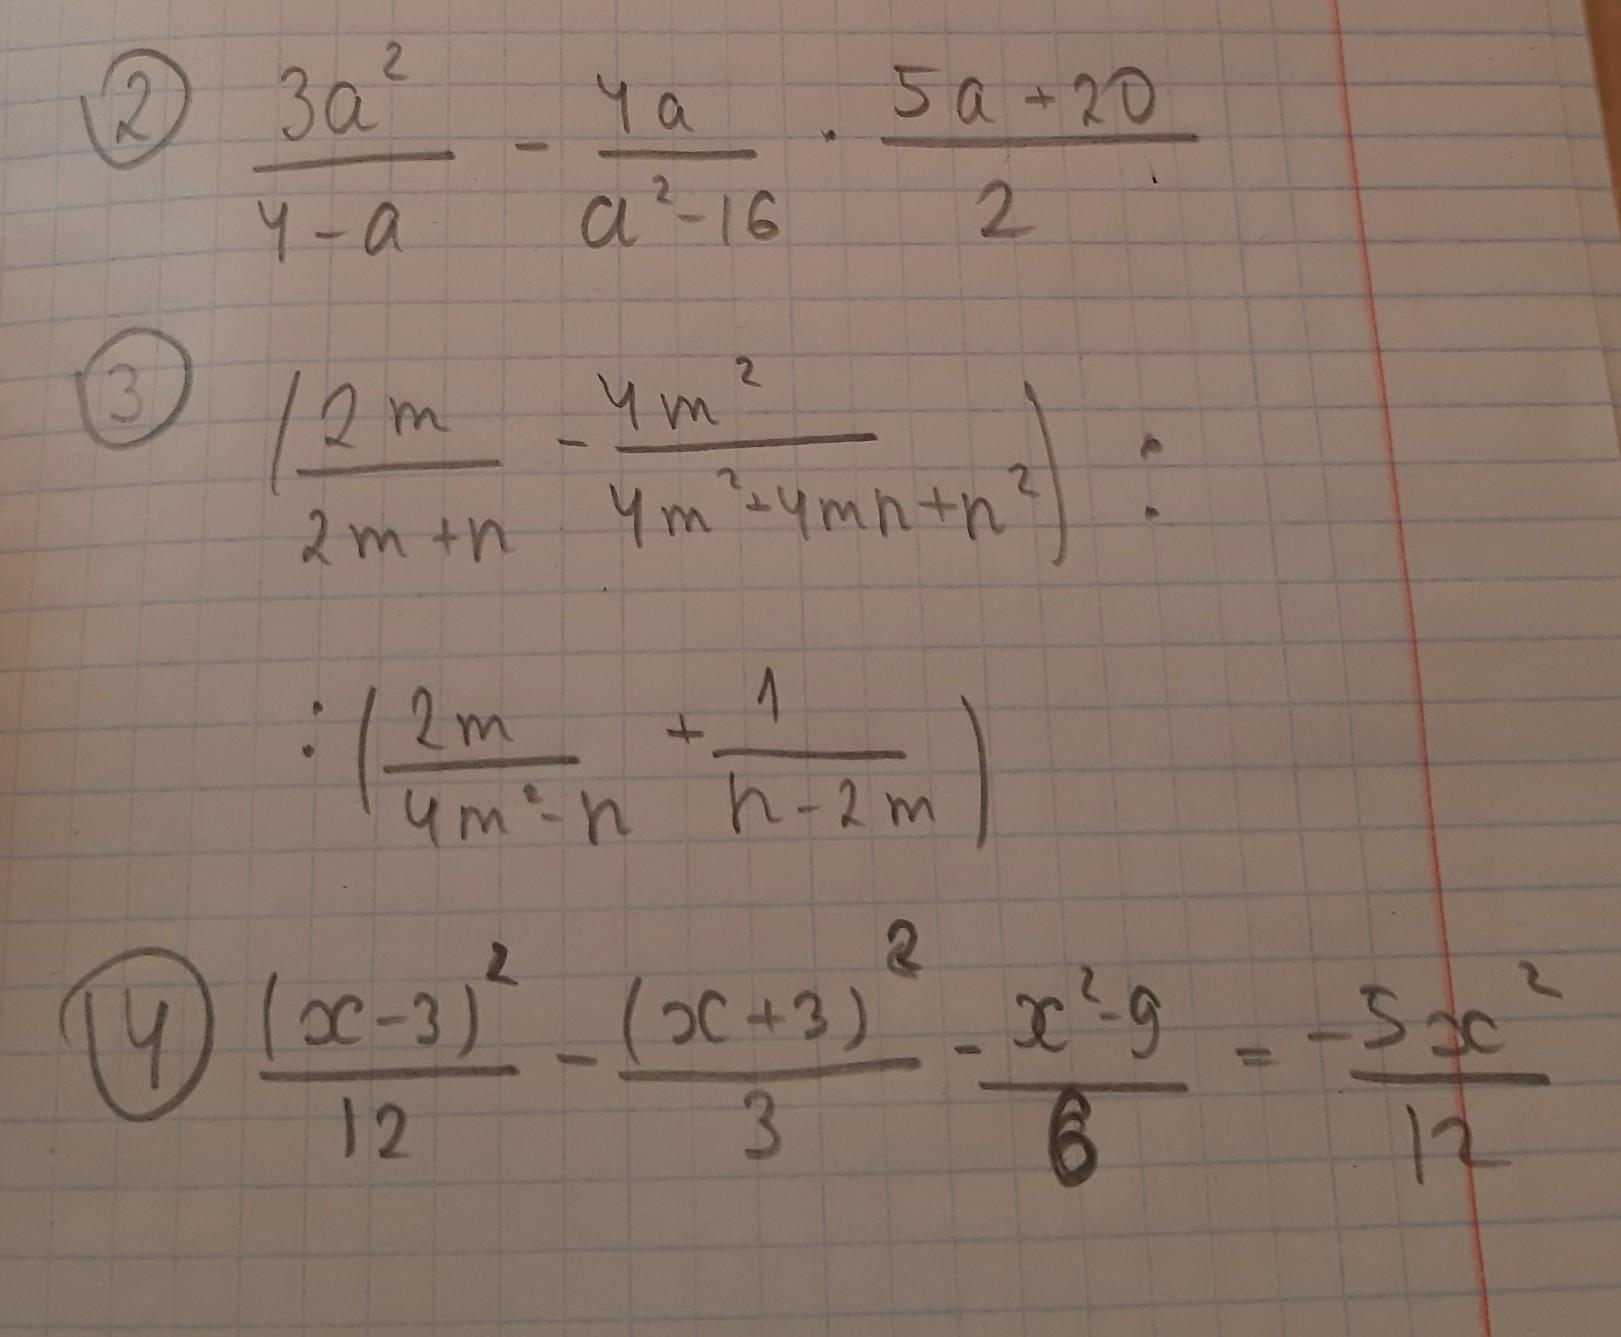 ② 3a²/(4-a) - 4a/(a²-16) · (5a+20)/2
③ (2m/(2m+n) - 4m²/(4m²+4mn+n²)) :
: (2m/(4m²-n) + 1/(n-2m))
④ (x-3)²/12 - (x+3)²/3 - (x²-9)/6 = -5x²/12